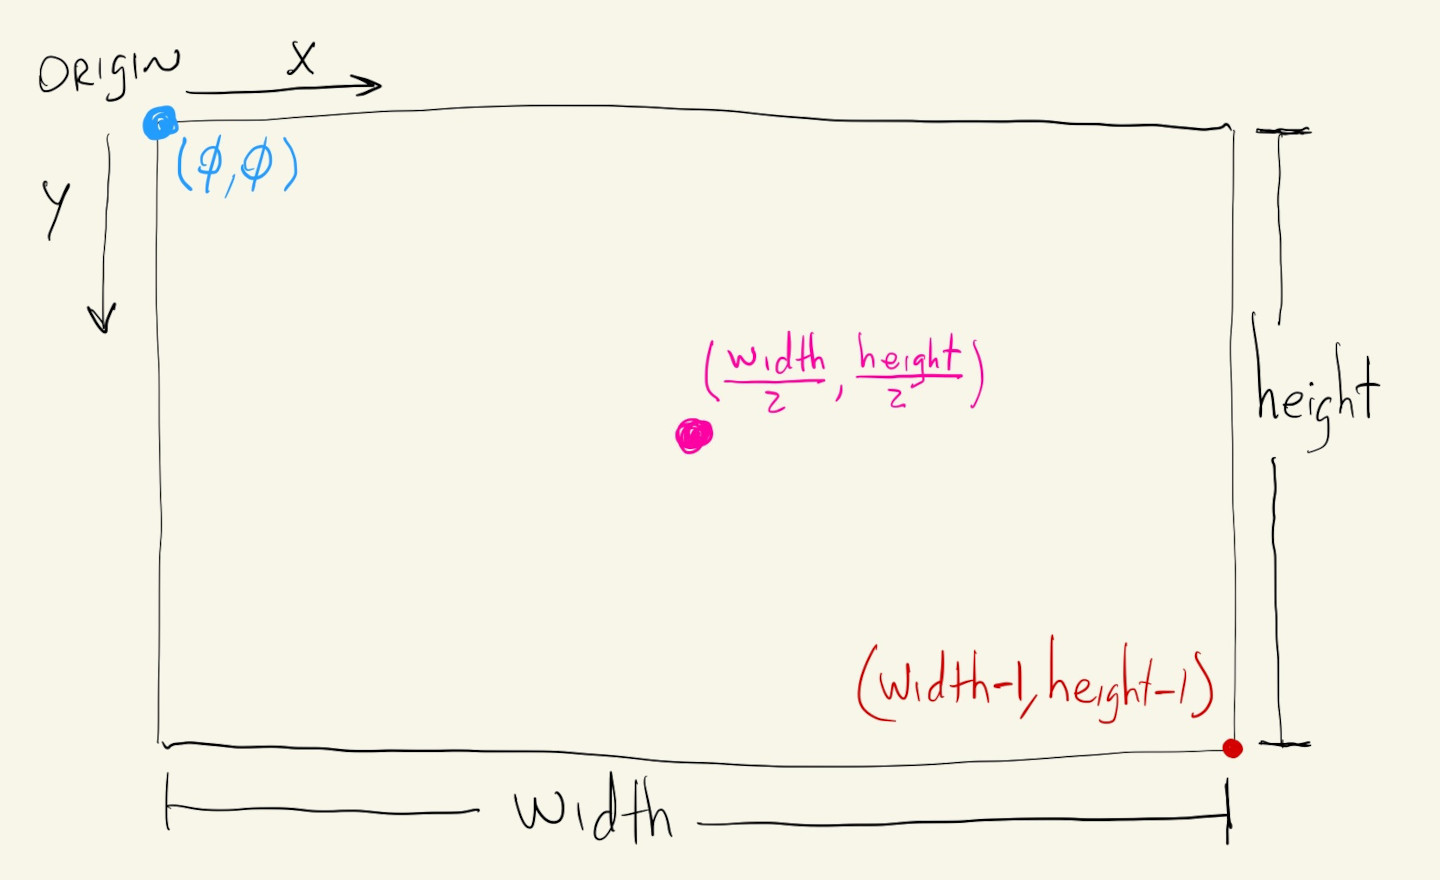 ORIGIN
X
(ϕ,ϕ)
y
(width/2, height/2)
height
(width-1, height-1)
width